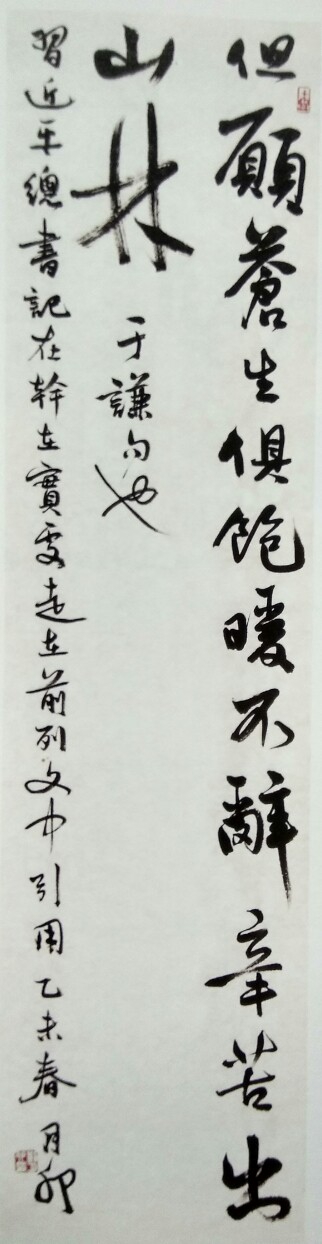 但願蒼生俱飽暖不辭辛苦出
山林
于謙句也
習近平總書記在幹在實處走在前列文中引用乙未春月